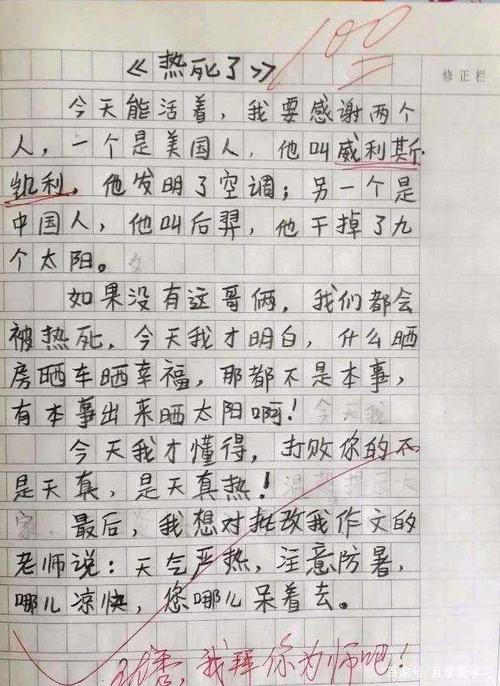 100
《热死了》
修正栏
今天能活着，我要感谢两个
人，一个是美国人，他叫威利斯
凯利，他发明了空调；另一个是
中国人，他叫后羿，他干掉了九
个太阳。
如果没有这哥俩，我们都会
被热死，今天我才明白，什么晒
房晒车晒幸福，那都不是本事，
有本事出来晒太阳啊！
今天我才懂得，打败你的不
是天真，是天真热！
最后，我想对批改我作文的
老师说：天气严热，注意防暑，
哪儿凉快，您哪儿呆着去。
我拜你为师吧！
百家号/且学爱学习